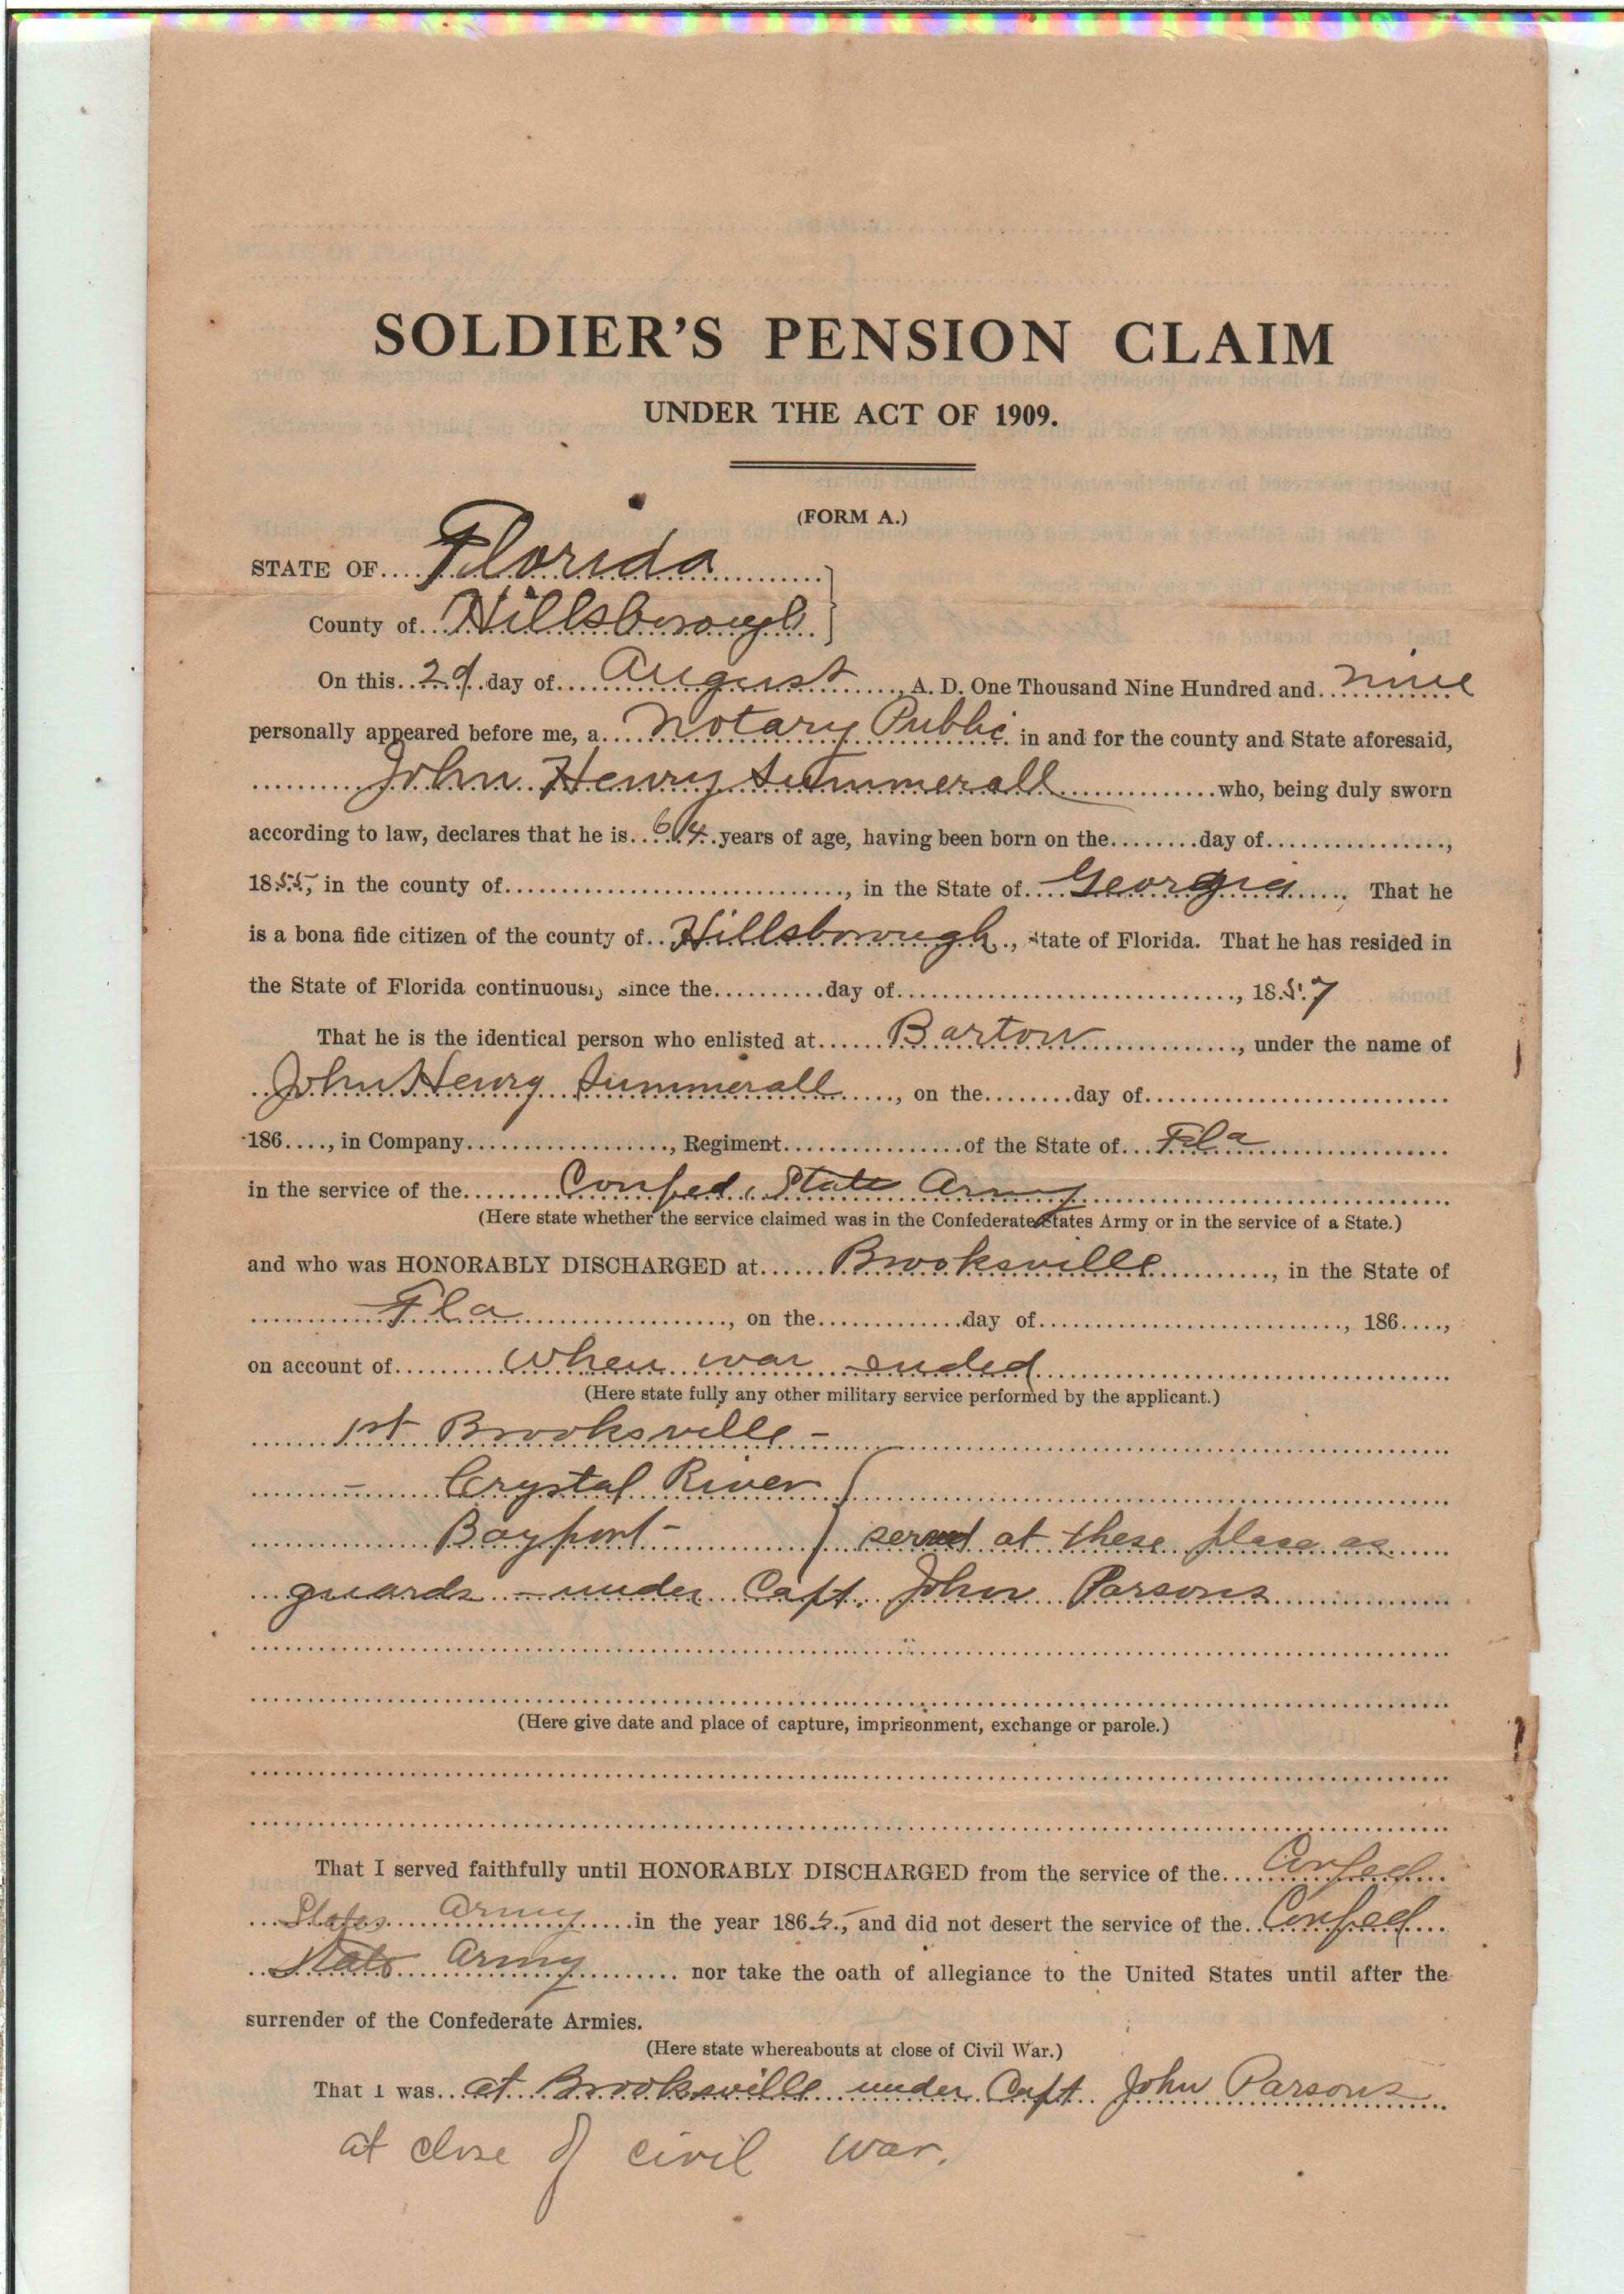 SOLDIER'S PENSION CLAIM
UNDER THE ACT OF 1909.
(FORM A.)
STATE OF....Florida
County of..Hillsborough
On this..29.day of....August......, A. D. One Thousand Nine Hundred and..nine
personally appeared before me, a....Notary Public in and for the county and State aforesaid,
John Henry Summerall.............who, being duly sworn
according to law, declares that he is..64..years of age, having been born on the........day of................,
1855, in the county of............................, in the State of...Georgia..... That he
is a bona fide citizen of the county of..Hillsborough., State of Florida. That he has resided in
the State of Florida continuously since the..........day of..............................., 18.57
That he is the identical person who enlisted at......Bartow..............., under the name of
John Henry Summerall....., on the........day of............................
186...., in Company..................., Regiment.................of the State of...Fla
in the service of the........Confed. State Army
(Here state whether the service claimed was in the Confederate States Army or in the service of a State.)
and who was HONORABLY DISCHARGED at......Brooksville.........., in the State of
Fla..................., on the.............day of............................, 186....,
on account of.........when war ended
(Here state fully any other military service performed by the applicant.)
1st Brooksville -
- Crystal River
Bayport - served at these place as
guards - under Capt. John Parsons
(Here give date and place of capture, imprisonment, exchange or parole.)
That I served faithfully until HONORABLY DISCHARGED from the service of the...Confed
States Army.....in the year 1865., and did not desert the service of the..Confed
State Army......... nor take the oath of allegiance to the United States until after the
surrender of the Confederate Armies.
(Here state whereabouts at close of Civil War.)
That I was..at Brooksville under Capt. John Parsons
at close of civil war.